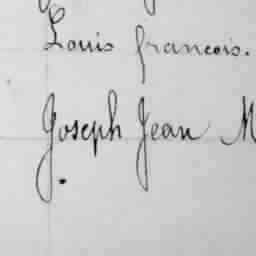 Louis francois.
Joseph Jean M